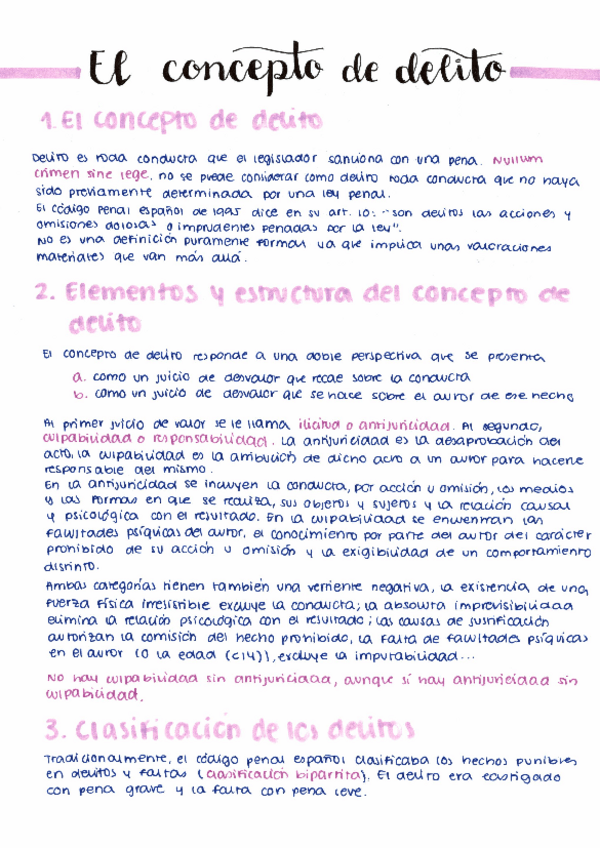 El concepto de delito
1. El concepto de delito
Delito es toda conducta que el legislador sanciona con una pena. Nullum
crimen sine lege, no se puede considerar como delito toda conducta que no haya
sido previamente determinada por una ley penal.
El código Penal español de 1995 dice en su art. 10: "son delitos las acciones y
omisiones dolosas o imprudentes penadas por la ley".
No es una definición puramente formal ya que implica unas valoraciones
materiales que van más allá.
2. Elementos y estructura del concepto de
delito
El concepto de delito responde a una doble perspectiva que se presenta
a. como un juicio de desvalor que recae sobre la conducta
b. como un juicio de desvalor que se hace sobre el autor de ese hecho
Al primer juicio de valor se le llama ilicitud o antijuricidad. Al segundo,
culpabilidad o responsabilidad. La antijuricidad es la desaprobación del
acto, la culpabilidad es la atribución de dicho acto a un autor para hacerle
responsable del mismo.
En la antijuricidad se incluyen la conducta, por acción u omisión, los medios
y las formas en que se realiza, sus objetos y sujetos y la relación causal
y psicológica con el resultado. En la culpabilidad se encuentran las
facultades psíquicas del autor, el conocimiento por parte del autor del carácter
prohibido de su acción u omisión y la exigibilidad de un comportamiento
distinto.
Ambas categorías tienen también una vertiente negativa, la existencia de una
fuerza física irresistible excluye la conducta; la absoluta imprevisibilidad
elimina la relación psicológica con el resultado; las causas de justificación
autorizan la comisión del hecho prohibido, la falta de facultades psíquicas
en el autor (o la edad (<14)), excluye la imputabilidad...
No hay culpabilidad sin antijuricidad, aunque sí hay antijuricidad sin
culpabilidad.
3. Clasificación de los delitos
Tradicionalmente, el código penal español clasificaba los hechos punibles
en delitos y faltas (clasificación bipartita). El delito era castigado
con pena grave y la falta con pena leve.